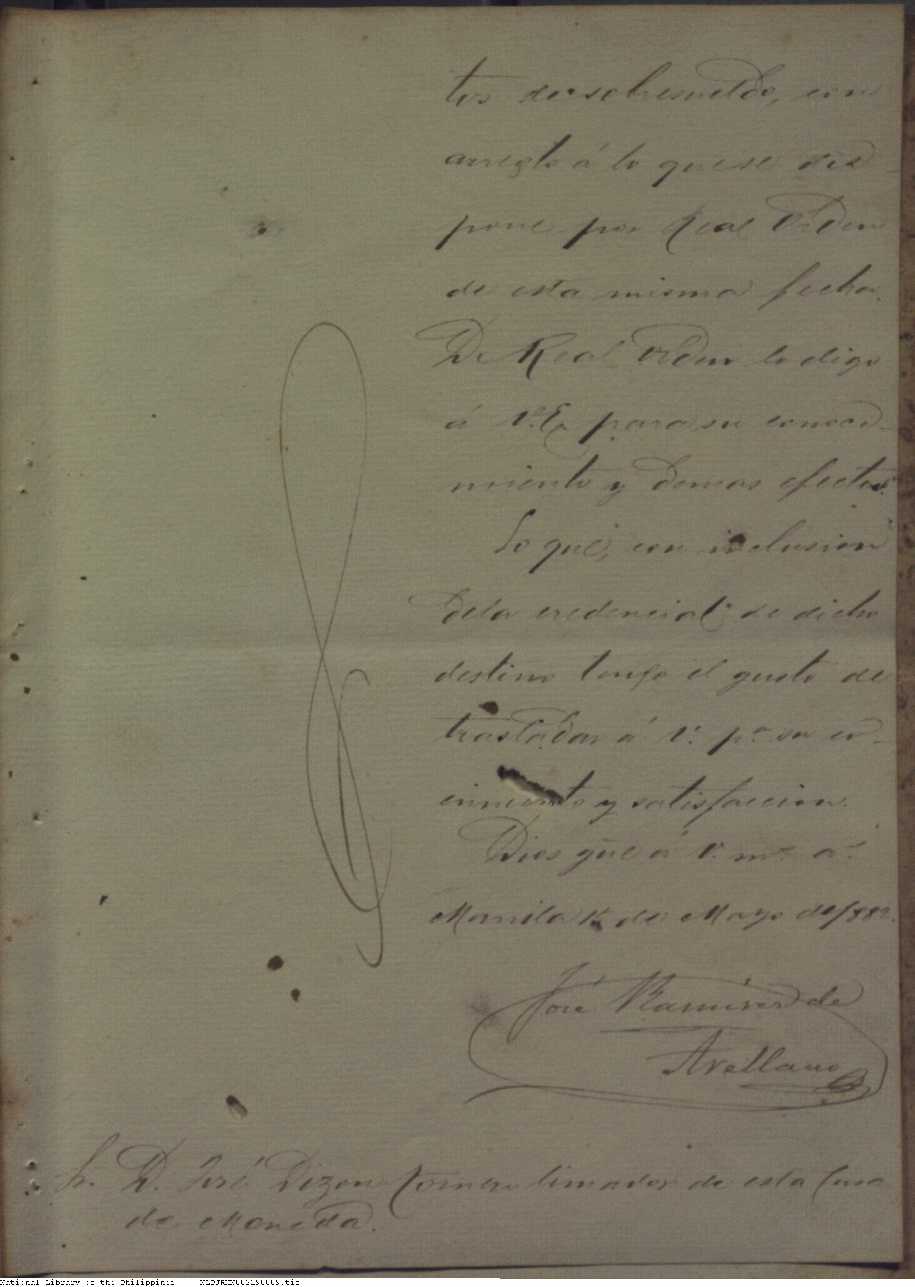 tos de sobresueldo, con
arreglo á lo que se dis-
pone por Real Orden
de esta misma fecha.
De Real Orden lo digo
á V.E. para su conoci-
miento y demas efectos.
Lo que, con inclusion
dela credencial de dicho
destino tengo el gusto de
trasladar á V. pª su co-
cimiento y satisfaccion.
Dios gue á V. ms. as.
Manila de Mayo de 1882.
José Ramirez de
Arellano
Sr. D. José Dizon tornero limador de esta Casa
de Moneda.
National Library of the Philippines